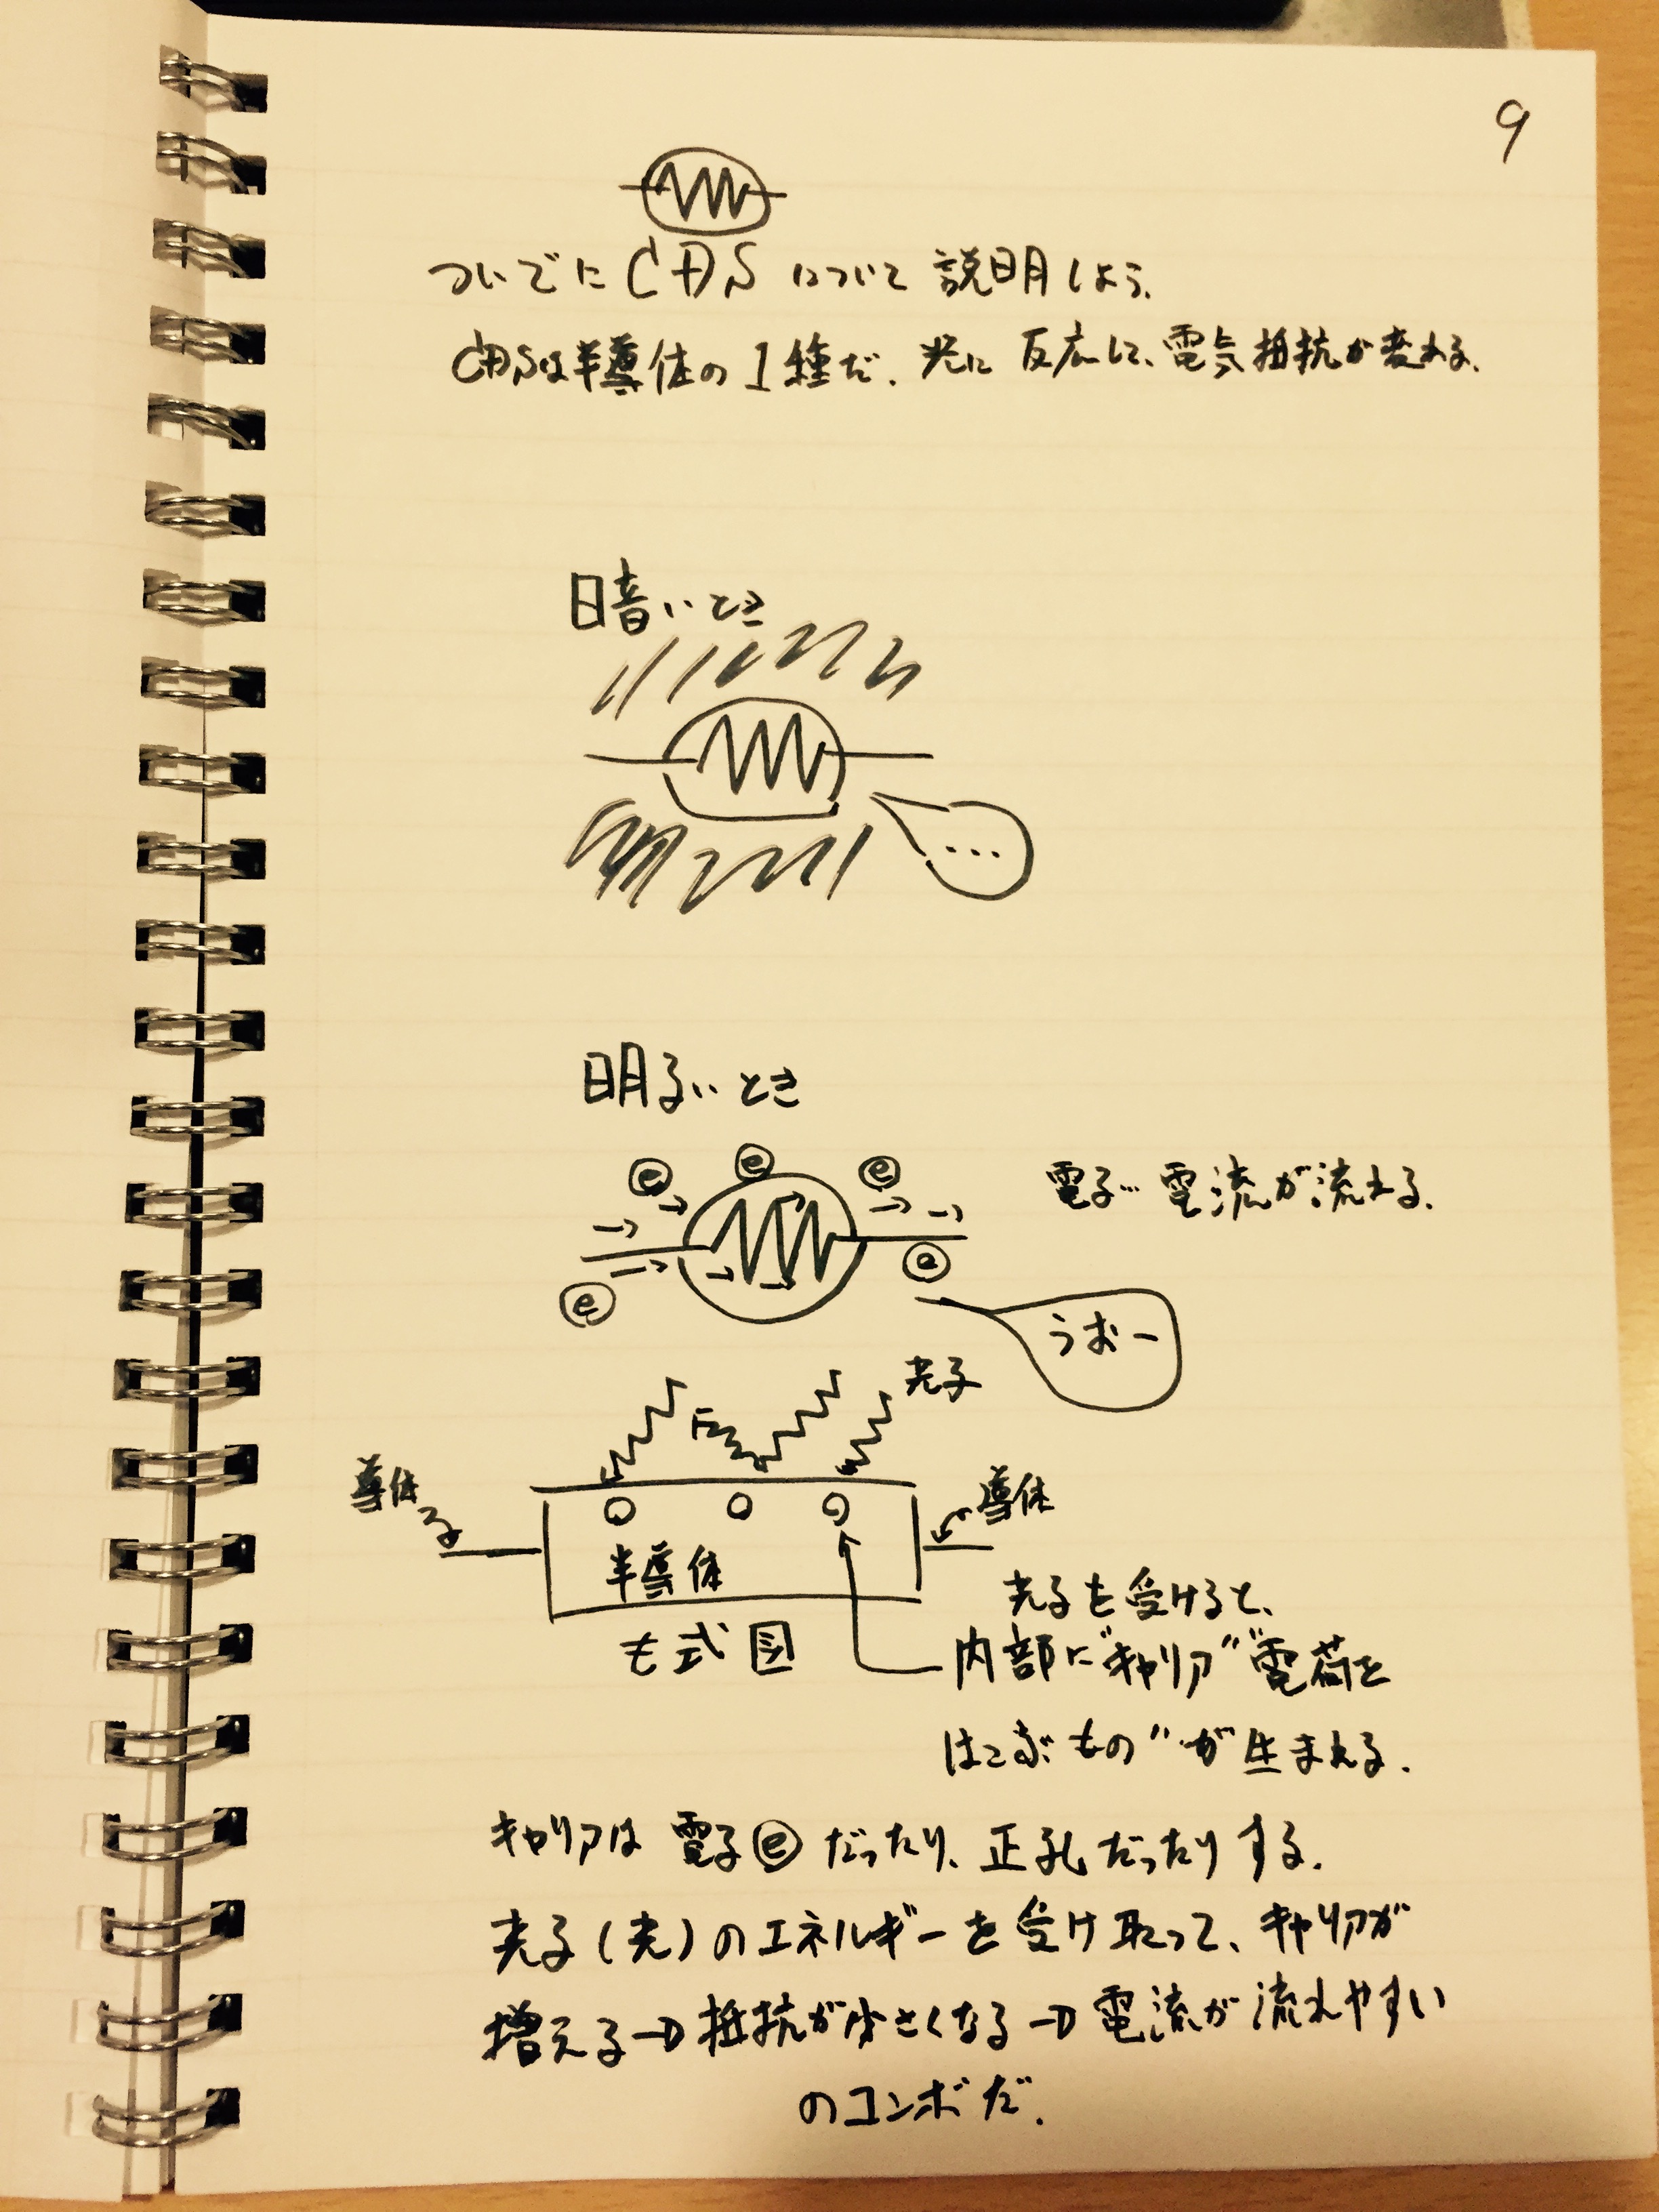 9
ついでにCDSについて説明しよう.
CDSは半導体の1種だ. 光に反応して、電気抵抗が変わる.
暗いとき
...
明るいとき
e e e
電子… 電流が流れる.
e e
うおー
光子
導体
導体
半導体
も式図
光子を受けると、
内部に“キャリア”“電荷を
はこぶもの”が生まれる.
キャリアは電子eだったり、正孔だったりする.
光子(光)のエネルギーを受け取って、キャリアが
増える→抵抗が小さくなる→電流が流れやすい
のコンボだ.